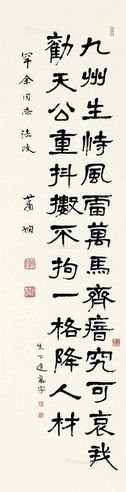 九州生恃風雷萬馬齊瘖究可哀我
勸天公重抖擻不拘一格降人材
生下遺氣字
同志法政
蕭嫻